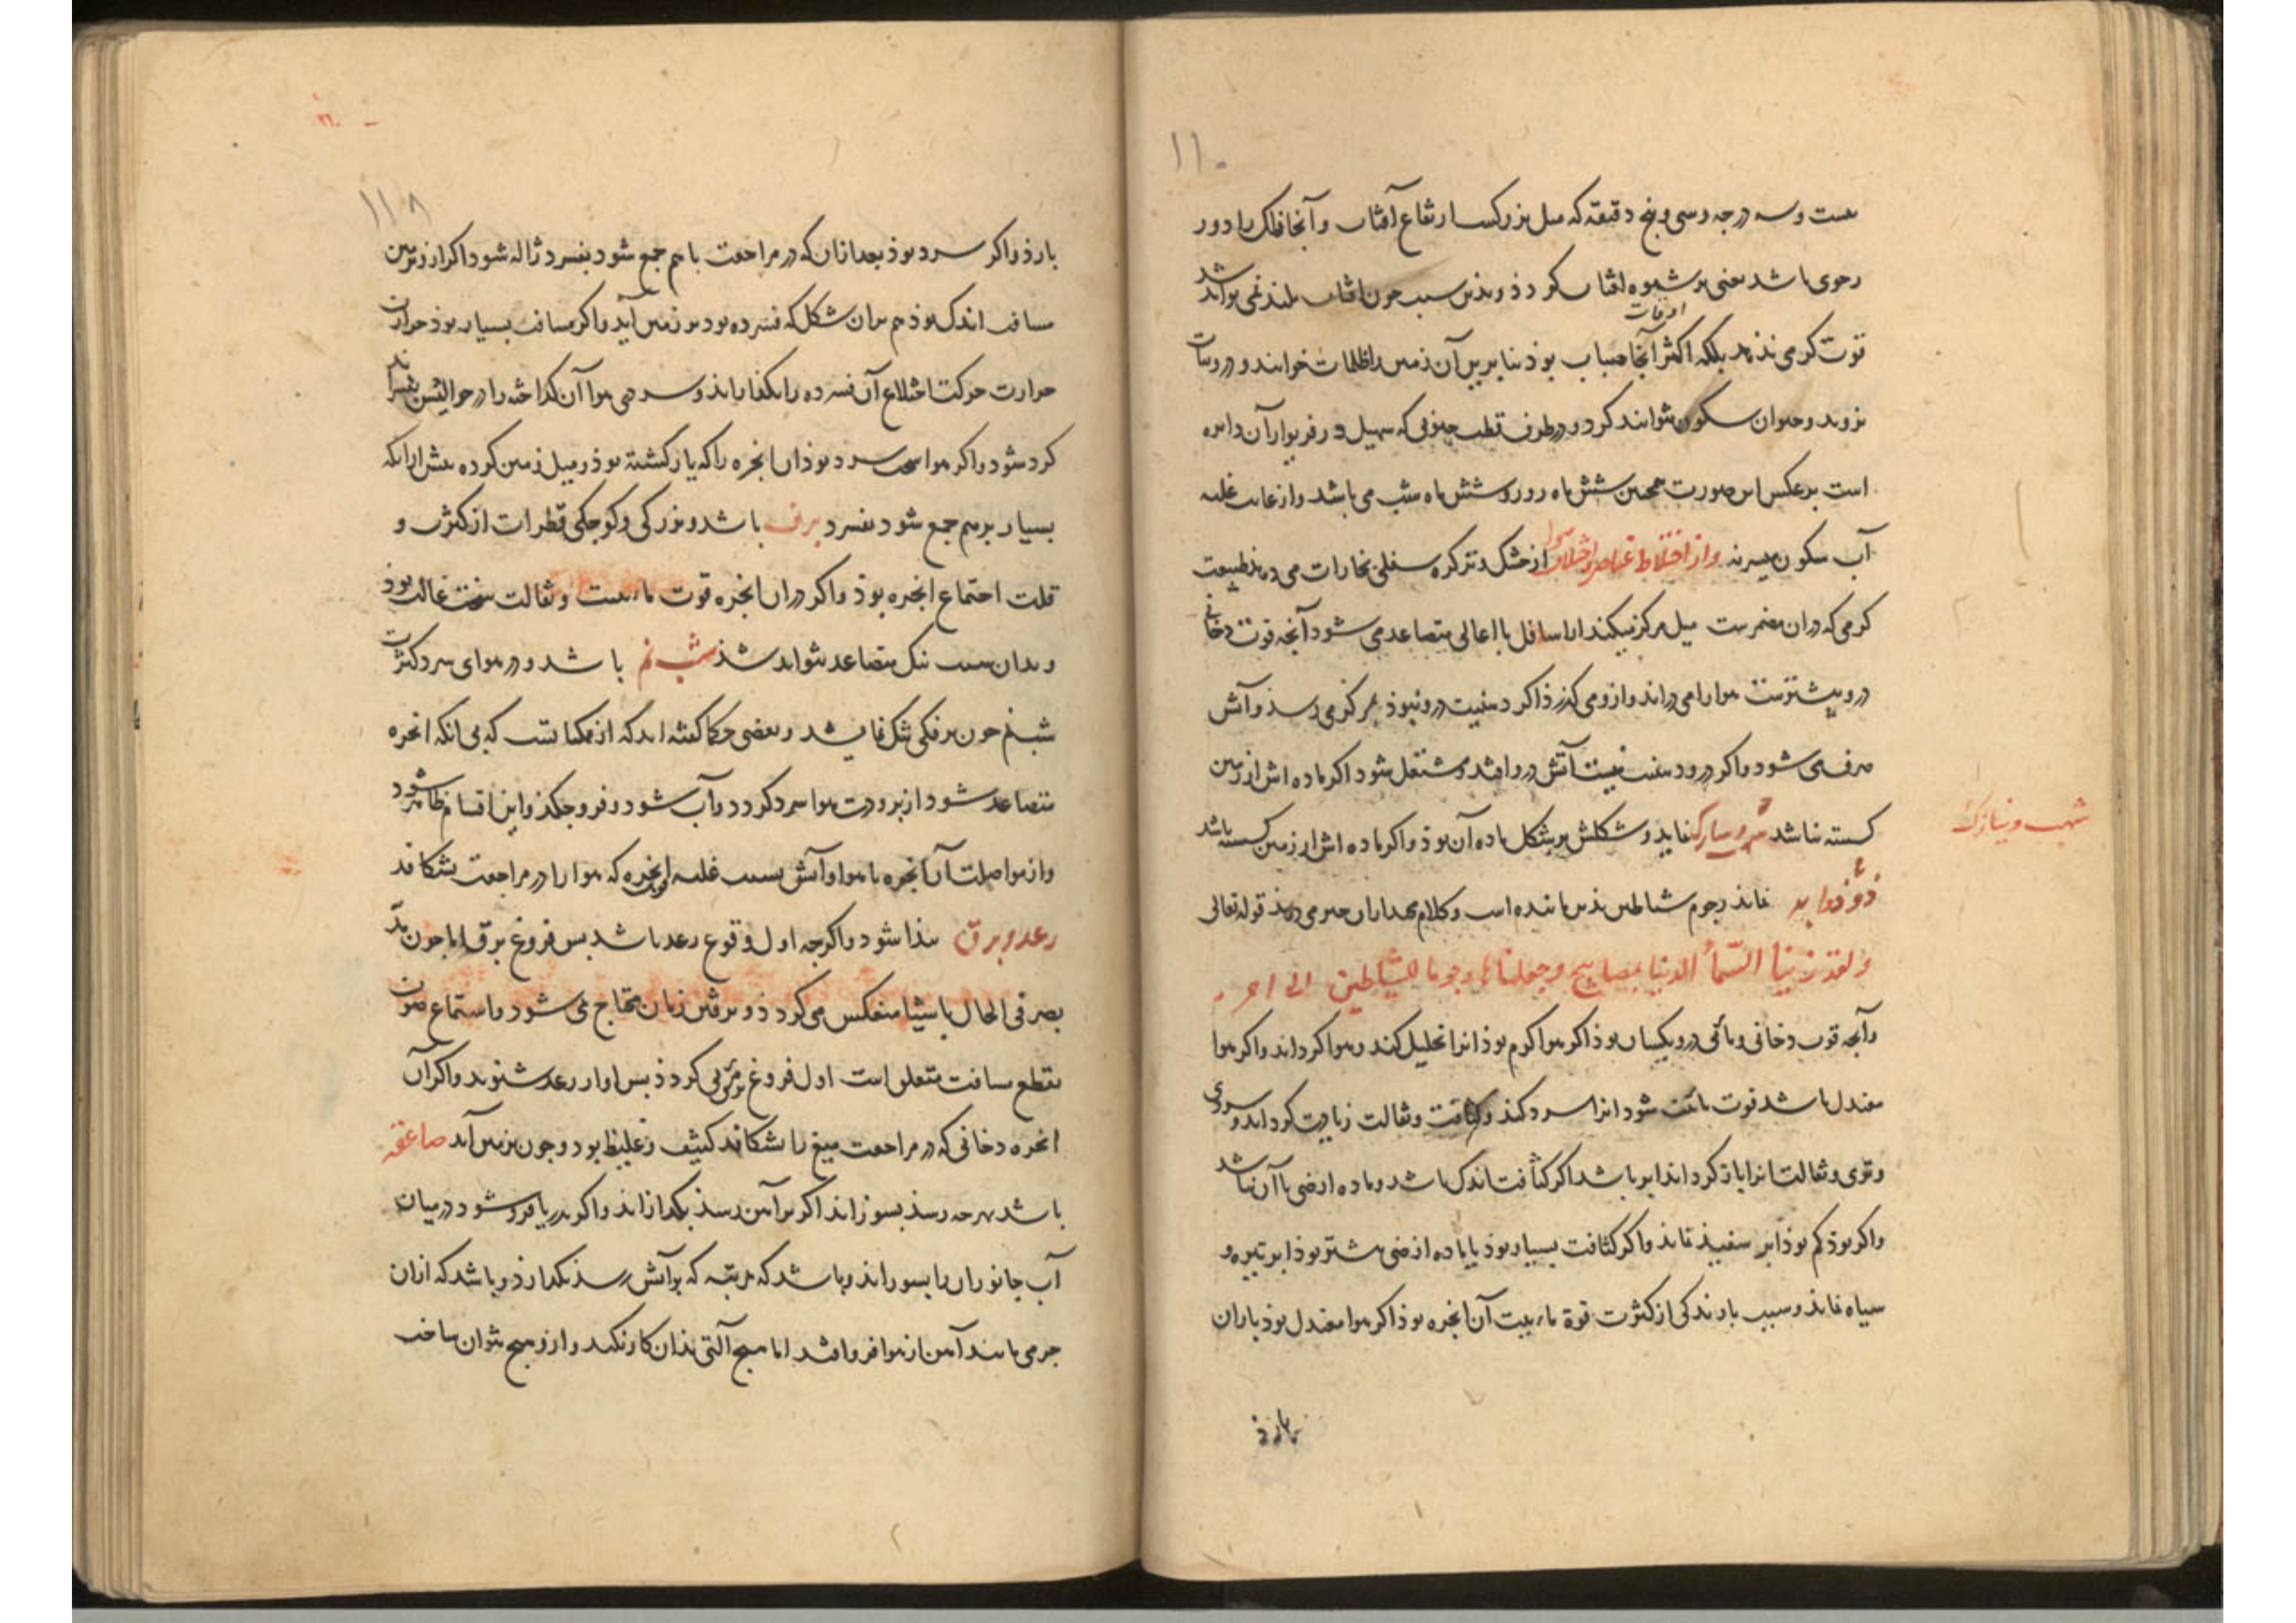 ۱۱۰
بیست و سه درجه و سی و پنج دقیقه که میل بزرگست ارتفاع آفتاب و آنجا فلک را دور
رحوی باشد یعنی بر شیوه آفتاب گردذ و بذین سبب چون آفتاب بلند نمی تواند شد
اوقات
قوت گرمی نذهد بلکه اکثر آنجا ضباب بوذ بنابرین آن زمین را ظلمات خوانند و درو نبات
نروید و حیوان سکون نتوانند کرد و در طرف قطب جنوبی که سهیل در فر بوار آن دایره
است بر عکس این صورت همچنین شش ماه روز و شش ماه شب می باشد و از غایت غلبه
آب سکون میسر نه و از اختلاط عناصر و اختلاف هوا از خشک و تر کره سفلی بخارات می دمذ طبیعت
گرمی که در آن مضمرست میل مرکز میکند از اسافل با اعالی متصاعد می شود آنچه قوت دخانی
درو بیشترست هوا را می دراند و ازو می گذرذ اگر دهنیت درو نبوذ بمرکز می رسذ و آتش
صرف می شود و اگر درو دهنیت است آتش درو افتد و مشتعل شود اگر ماده اش از زمین
گسسته نباشد شهب و نیازک نماید و شکلش بر شکل ماده آن بوذ و اگر ماده اش از زمین گسسته باشد
شهب و نیازک
ذو ذوابه نماید رجوم شیاطین بذین مانند است و کلام مجید از آن خبر می دهد قوله تعالی
ولقد زینا السمآء الدنیا بمصابیح وجعلناها رجوما للشیاطین الی اخر
و آنچه قوت دخانی و مائی درو یکسان بوذ اگر هوا گرم بوذ آنرا تحلیل کند و هوا گرداند و اگر هوا
معتدل باشد قوت مائیت شود آنرا سرد کند و کثافت و ثقالت زیادت گرداند و سردی
و تری و ثقالت آنرا باز گرداند ابر باشد اگر کثافت اندک باشد و ماده ارضی با آن نباشد
و اگر بوذ کم بوذ ابر سفیذ نماید و اگر کثافت بسیار بوذ یا ماده ارضی بیشتر بوذ ابر تیره و
سیاه نماید و سبب بارندگی از کثرت قوة مائیت آن ابخره بوذ اگر هوا معتدل بوذ باران
بارذ
۱۱۸
بارذ و اگر سرد بوذ بعد از آن که در مراجعت با هم جمع شود بفسرد ژاله شود اگر از زمین
مسافت اندک بوذ هم بران شکل که فسرده بود بر زمین آید و اگر مسافت بسیار بوذ حرارت
حرارت حرکت اضلاع آن فسرده را بگدازاند و سردی هوا آن گداخته را در حوالیش بفسراند
گرد شود و اگر هوا سخت سرد بوذ آن ابخره را که باز گشته بوذ و میل زمین کرده پیش از آنکه
بسیار برهم جمع شود بفسرد برف باشد و بزرگی و کوچکی قطرات از کثرت و
قلت اجتماع ابخره بوذ و اگر در آن ابخره قوت مائیت و ثقالت سخت غالب بوذ
و بدان سبب نیک متصاعد نتواند شذ شبنم باشد و در هوای سرد کثرت
شبنم چون برفکی تنک نماید و بعضی حکما گفته اند که از ممکناتست که بی آنکه ابخره
متصاعد شود از برودت هوا سرد گردد و آب شود و فرو چکذ و این اقسام ظاهر شود
و از مواصلت آن ابخره با هوا و آتش بسبب غلبه ابخره که هوا را در مراجعت بشکافد
رعد و برق پیذا شود و اگرچه اول وقوع رعد باشد پس فروغ برق اما چون
بصر فی الحال باشیا منعکس می گردذ و برفتن زمان محتاج نمی شود و استماع صوت
بقطع مسافت متعلق است اول فروغ مرئی گردذ پس آواز رعد شنوند و اگر آن
ابخره دخانی که در مراجعت میغ را بشکافد کثیف و غلیظ بود و چون بزمین آید صاعقه
باشد بهر چه رسذ بسوزاند اگر بر آهن رسذ بگدازاند و اگر بدریا فرو شود در میان
آب جانوران را بسوزاند و باشد که مرتبه که بر آتش رسذ بگدازذ و باشد که از آن
جرمی مانند آهن از هوا فرو افتد اما هیچ آلتی بذان کار نکند و ازو هیچ نتوان ساخت